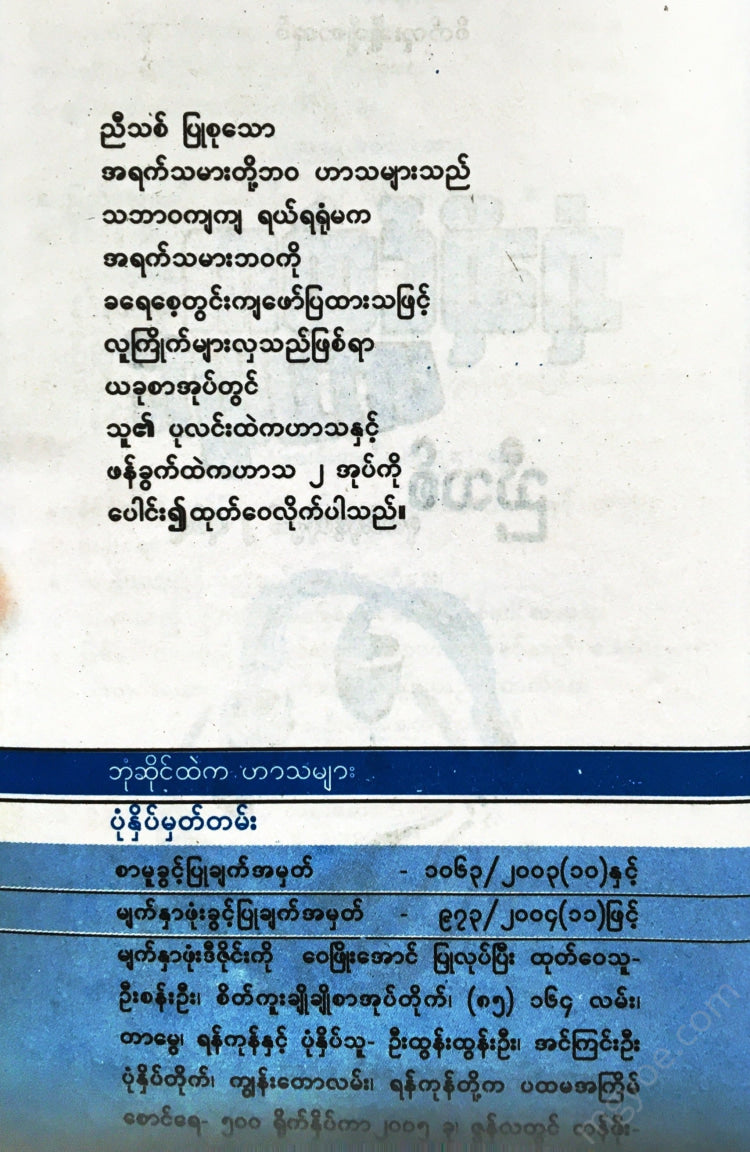 ညီသစ် ပြုစုသော
အရက်သမားတို့ဘဝ ဟာသများသည်
သဘာဝကျကျ ရယ်ရရုံမက
အရက်သမားဘဝကို
ခရေစေ့တွင်းကျဖော်ပြထားသဖြင့်
လူကြိုက်များလှသည်ဖြစ်ရာ
ယခုစာအုပ်တွင်
သူ၏ ပုလင်းထဲကဟာသနှင့်
ဖန်ခွက်ထဲကဟာသ ၂ အုပ်ကို
ပေါင်း၍ထုတ်ဝေလိုက်ပါသည်။
ဘုံဆိုင်ထဲက ဟာသများ
ပုံနှိပ်မှတ်တမ်း
စာမူခွင့်ပြုချက်အမှတ် - ၁၀၆၃/၂၀၀၃(၁၀)နှင့်
မျက်နှာဖုံးခွင့်ပြုချက်အမှတ် - ၉၇၃/၂၀၀၄(၁၁)ဖြင့်
မျက်နှာဖုံးဒီဇိုင်းကို ဝေဖြိုးအောင် ပြုလုပ်ပြီး ထုတ်ဝေသူ-
ဦးစန်းဦး၊ စိတ်ကူးချိုချိုစာအုပ်တိုက်၊ (၈၅) ၁၆၄ လမ်း၊
တာမွေ၊ ရန်ကုန်နှင့် ပုံနှိပ်သူ- ဦးထွန်းထွန်းဦး၊ အင်ကြင်းဦး
ပုံနှိပ်တိုက်၊ ကျွန်းတောလမ်း၊ ရန်ကုန်တို့က ပထမအကြိမ်
စောင်ရေ- ၅၀၀ ရိုက်နှိပ်ကာ ၂၀၀၅ ခု၊ ဇွန်လတွင်